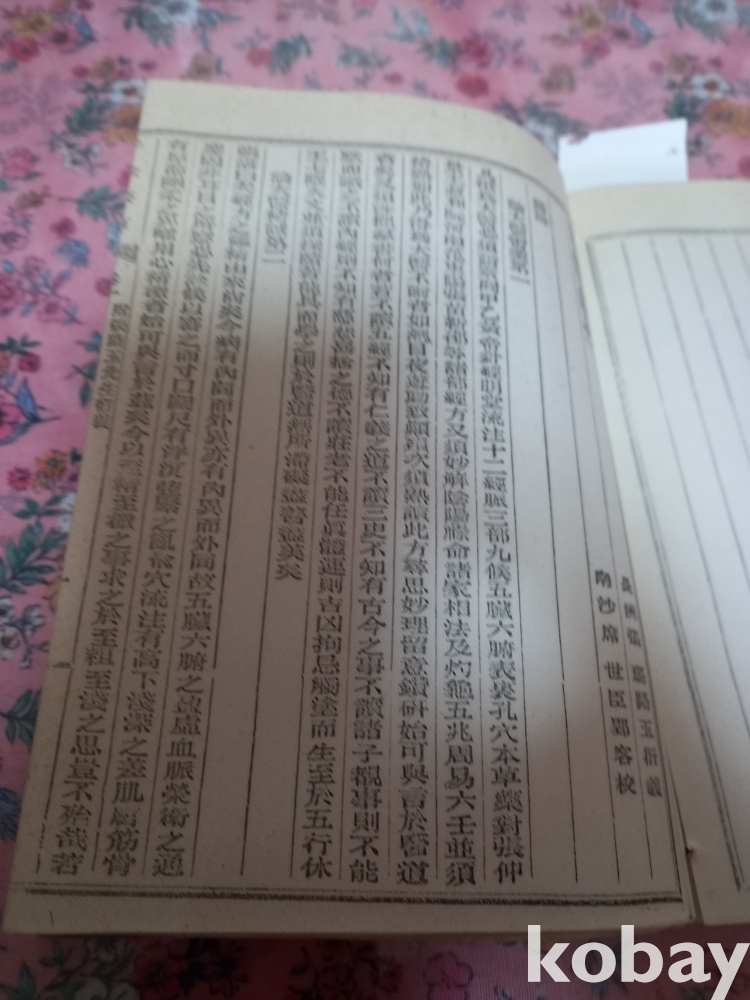 長洲張 璐路玉衍義
南沙席 世臣郢客校
大醫習業第一
凡欲為大醫必須諳素問甲乙黃帝鍼經明堂流注十二經脈三部九候五臟六腑表裏孔穴本草藥對張仲
景王叔和阮河南范東陽張苗靳邵等諸部經方又須妙解陰陽祿命諸家相法及灼龜五兆周易六壬並須
精熟如此乃得為大醫若不爾者如無目夜遊動致顛殞次須熟讀此方尋思妙理留意鑽研始可與言於醫道
者矣又須涉獵羣書何者若不讀五經不知有仁義之道不讀三史不知有古今之事不讀諸子覩事則不能
默而識之不讀內經則不知有慈悲喜捨之德不讀莊老不能任真體運則吉凶拘忌觸塗而生至於五行休
王七耀天文並須探賾若能具而學之則於醫道無所滯礙盡善盡美矣
大醫精誠第二
張湛曰夫經方之難精由來尚矣今病有內同而外異亦有內異而外同故五臟六腑之盈虛血脈榮衛之通
塞固非耳目之所察必先診候以審之而寸口關尺有浮沉弦緊之亂俞穴流注有高下淺深之差肌膚筋骨
有厚薄剛柔之異唯用心精微者始可與言於茲矣今以至精至微之事求之於至粗至淺之思豈不殆哉若
張璐路玉先生衍義
kobay